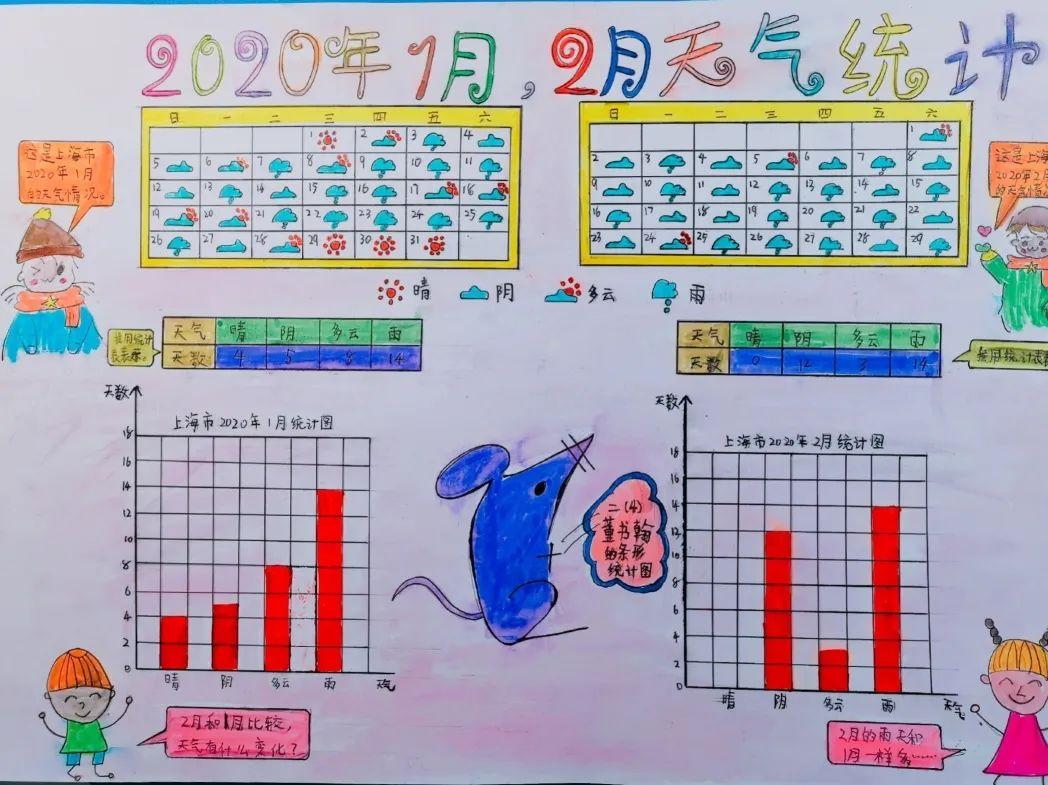 2020年1月,2月天气统计
日 一 二 三 四 五 六
1 2 3 4
5 6 7 8 9 10 11
12 13 14 15 16 17 18
19 20 21 22 23 24 25
26 27 28 29 30 31
日 一 二 三 四 五 六
1
2 3 4 5 6 7 8
9 10 11 12 13 14 15
16 17 18 19 20 21 22
23 24 25 26 27 28 29
这是上海市
2020年1月
的天气情况。
这是上海
2020年2月
的天气情
晴 阴 多云 雨
按用统计
表表示。
天气 晴 阴 多云 雨
天数 4 5 8 14
天气 晴 阴 多云 雨
天数 0 12 3 14
按用统计表
天数
上海市2020年1月统计图
18
16
14
12
10
8
6
4
2
0
晴 阴 多云 雨 天气
二(4)
董书翰
的条形
统计图
天数
上海市2020年2月统计图
18
16
14
12
10
8
6
4
2
0
晴 阴 多云 雨 天气
2月和1月比较,
天气有什么变化?
2月的雨天和
1月一样多……